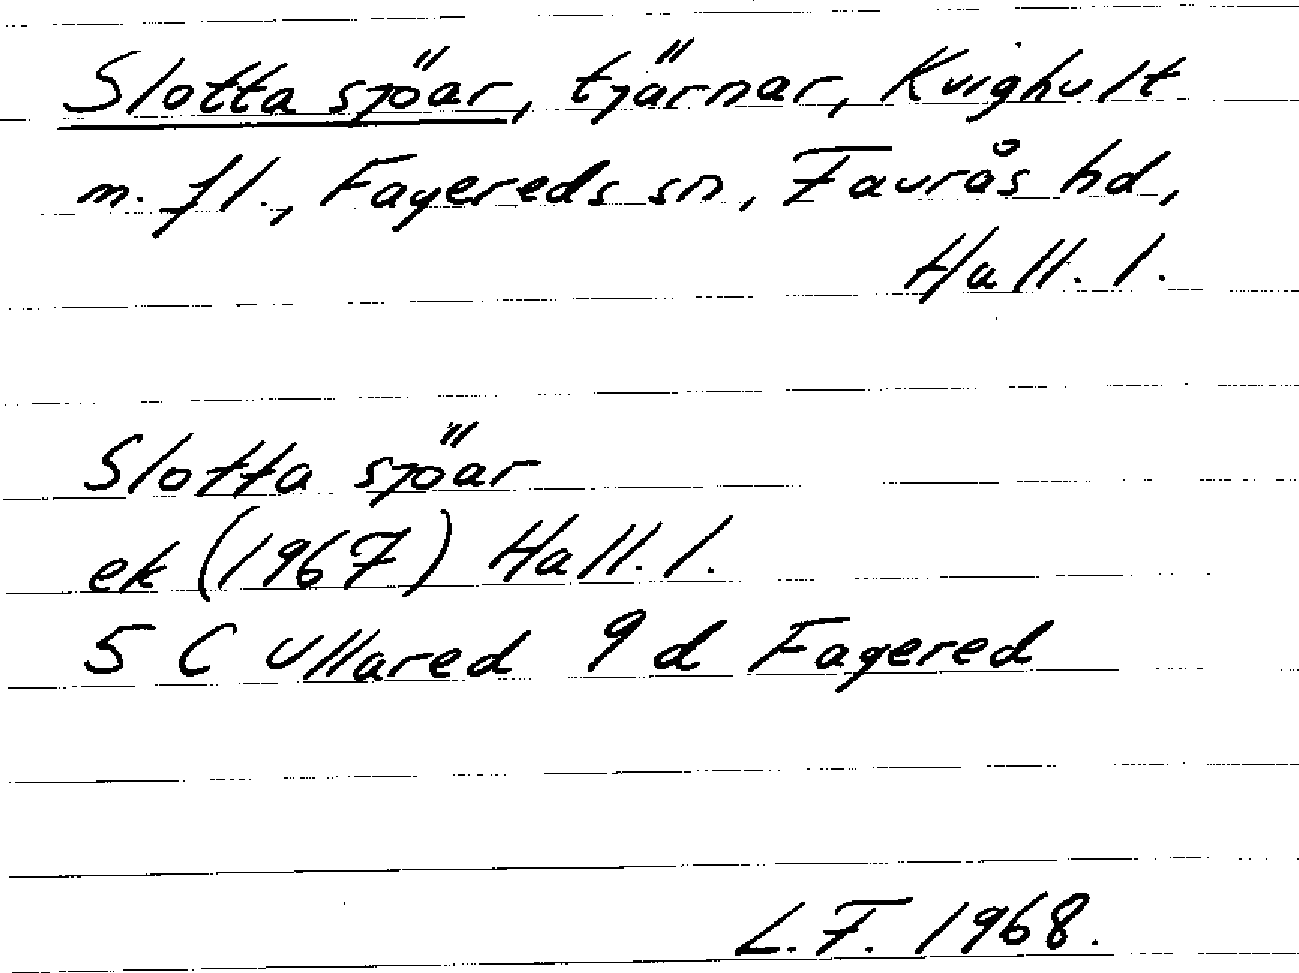 Slotta sjöar, tjärnar, Kvighult
m. fl., Fagereds sn, Faurås hd,
Hall. l.
Slotta sjöar
ek (1967) Hall. l.
5 C Ullared 9 d Fagered
L. F. 1968.